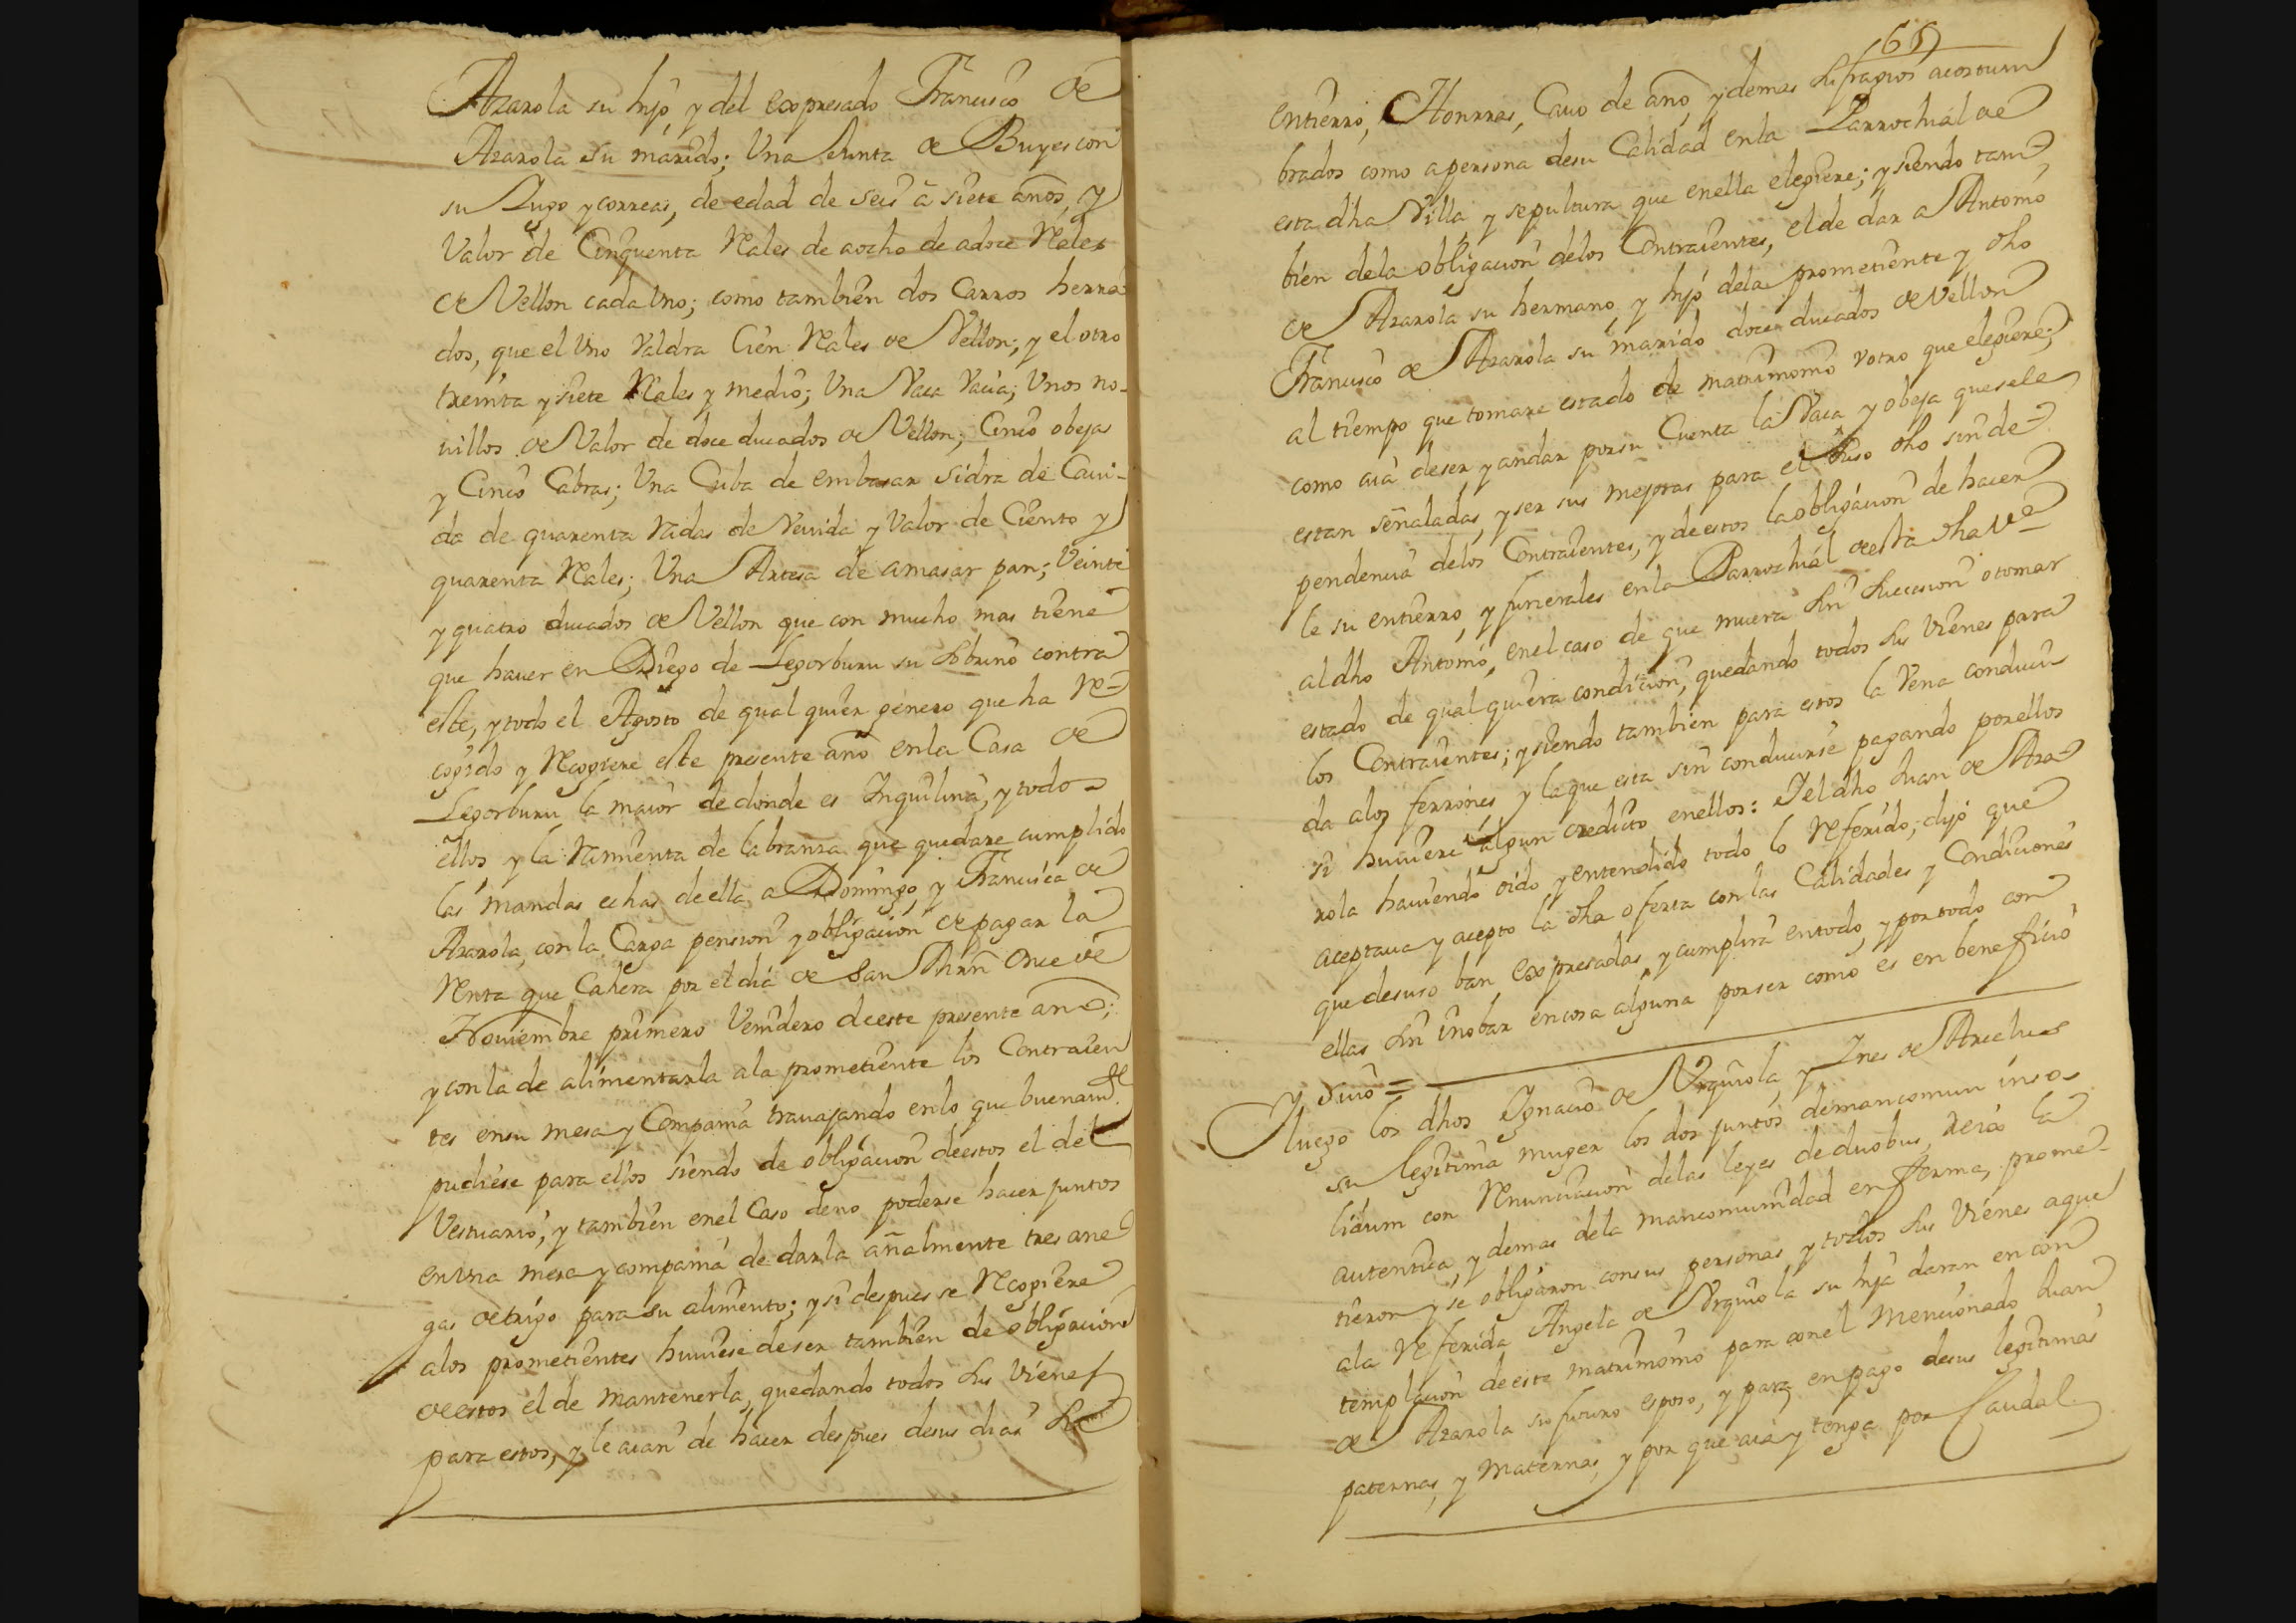 Azarola su hijo y del expresado Francisco de
Azarola su marido; Una Junta de Buyes con
su Yugo y correas, de edad de seis â siete años, y
Valor de Cinquenta Rales de aocho de adoce Rales
de Vellon cada Uno; como tambien dos Carros herra-
dos, que el Uno Valdra Cien Rales de Vellon; y el otro
treinta y siete Rales y medio; Una Vaca Vacia; Unos no-
uillos de Valor de doce ducados de Vellon; Cinco obejas
y Cinco Cabras; Una Cuba de embasar sidra de Caui-
da de quarenta Cadas de Veuida y Valor de Ciento y
quarenta Rales; Una Artesa de amasar pan; Veinte
y quatro ducados de Vellon que con mucho mas tiene
que hauer en Diego de Legorburu su Sobrino contra
este, y todo el Agosto de qual quier genero que ha Re-
cogido y Recogiere este presente año enla Casa de
Legorburu la maior de donde es Inquilina, y todo
ellos y la Ramienta de labranza que quedare cumplido
las mandas echas de ella a Domingo, y Francisca de
Azarola, con la Carga pension y obligacion de pagar la
Renta que Cahera por el dia de San Mrn Once de
Noviembre primero Venidero de este presente año;
y con la de alimentarla ala prometiente los Contraien
tes ensu mesa y Compañia trauajando enlo que buenamte
pudiese para ellos siendo de obligacion deestos el del
Vestuario, y tambien enel Caso deno poderse hacer juntos
enUna mesa y compañia de darla añalmente tres ane
gas detrigo para su alimento; y si despues se Recogiere
alos prometientes huuiese deser tambien de obligacion
deestos el de mantenerla, quedando todos sus Vienes
para estos, y le aian de hacer despues desus dias Su
65
entierro, Honrras, Cauo de año, y demas Sufragios acostum
brados como apersona desu Calidad enla Parrochial de
esta dha Villa y sepultura que enella elegiere; y siendo tam-
bien dela obligacion delos Contraientes, el de dar a Antonio
de Azarola su hermano, y hijo dela prometiente y dho
Francisco de Azarola su marido doce ducados de Vellon
al tiempo que tomare estado de matrimonio votro que elegiere;
como aia deser y andar porsu Cuenta la Vaca y obeja quesele
estan señaladas, y ser sus mejoras para el Suso dho sin de-
pendencia delos Contraientes, y deestos la obligacion de hacer
le su entierro, y funerales enla Parrochial deesta dha Va
aldho Antonio, enel caso de que muera Sin Succesion otomar
estado de qualquiera condicion, quedando todos sus Vienes para
los Contraientes; y siendo tambien para estos la Vena conduci
da alos ferrones, y laque esta sin conducirse pagando porellos
si huuiere algun credito enellos: Iel dho Juan de Aza-
rola hauiendo oido y entendido todo lo Referido; dijo que
aceptaua y acepto la dha oferta con las Calidades y Condiciones
que desuso ban Expresadas, y cumplirà entodo, y por todo con
ellas Sin inobar encosa alguna porser como es en beneficio
Suio =
Y luego los dhos Ignacio de Urquiola, y Ines de Arcelus
su legitima muger los dos juntos demancomun inso-
lidum con Renunciacion delas leyes de duobus, Reis la
autentica, y demas dela mancomunidad en forma, prome-
tieron y se obligaron consus personas y todos Sus Vienes aque
ala Referida Angela de Urquiola su hija daran en con
templacion deeste matrimonio para conel Mencionado Juan
de Azarola su futuro esposo, y para enpago desus legitimas
paternas, y Maternas, y por que aia y tenga por Caudal